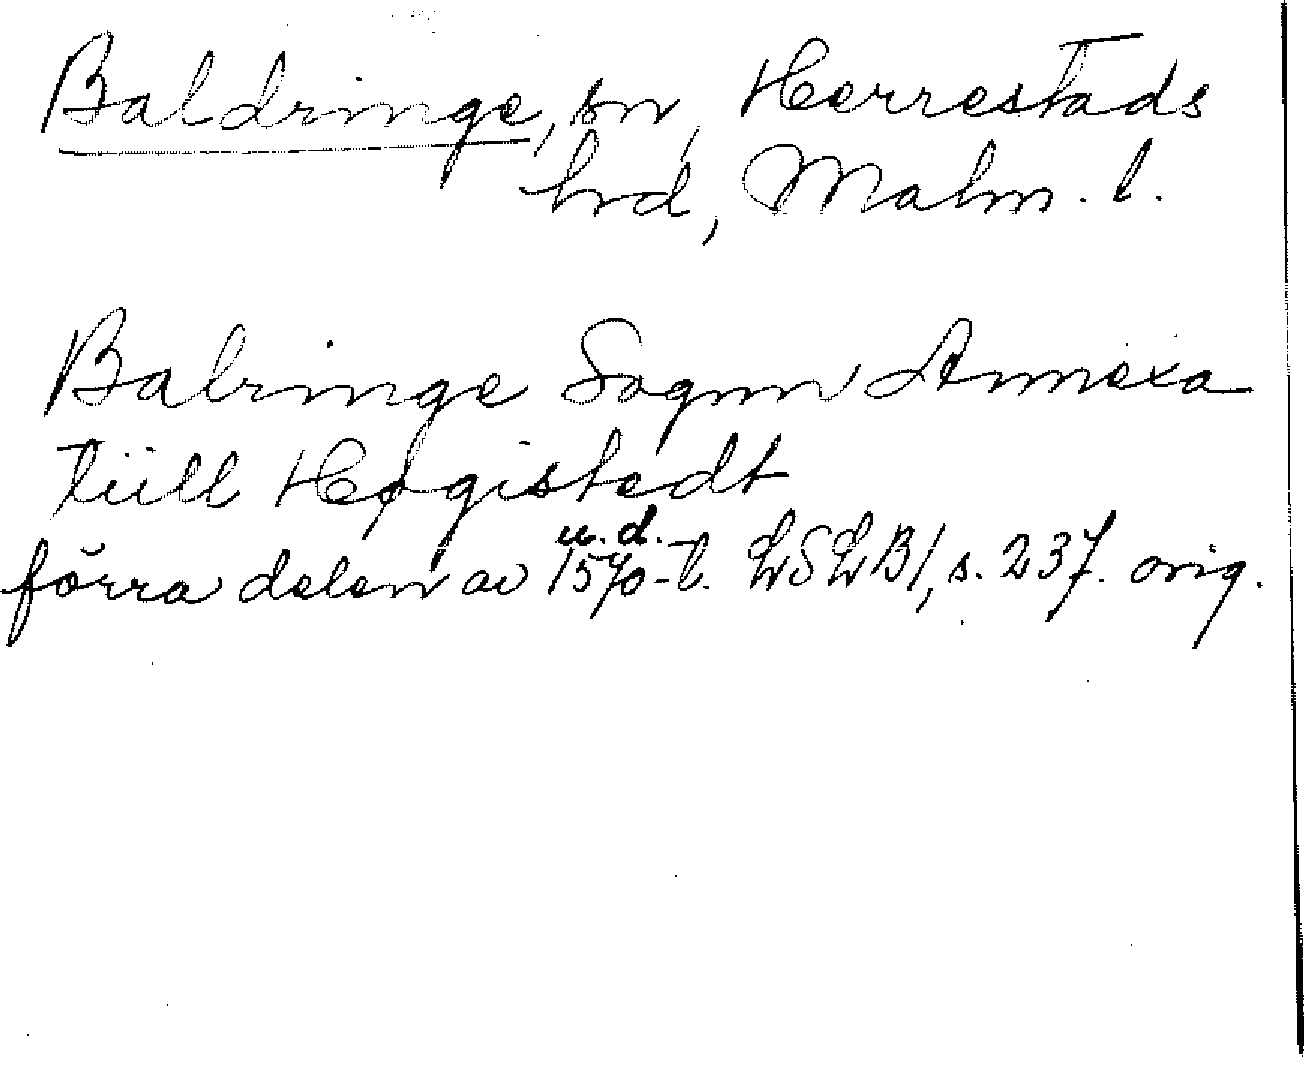 Baldringe, sn, Herrestads
hrd, Malm. l.
Balringe Sognn Annexa
tüll Høgistedt
u. d.
förra delen av 1570-t. LSLB1, s. 237. orig.